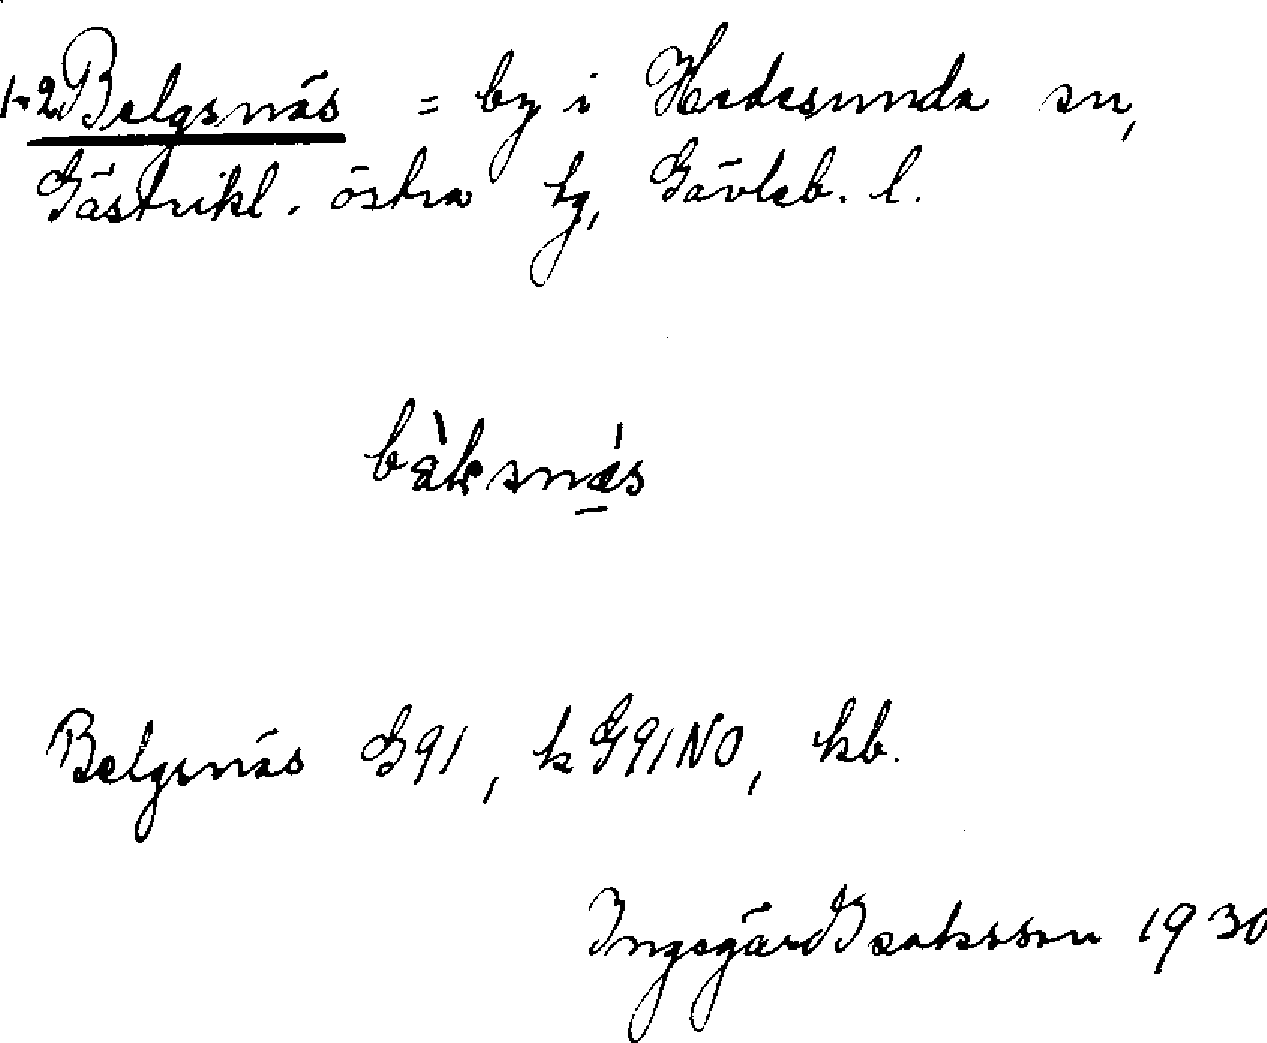 1-2 Belgsnäs = by i Hedesunda sn,
Gästrikl. östra tg, Gävleb. l.
bàksnás
Belgsnäs G91, k G91NO, kb.
Ingegärd Isaksson 1930